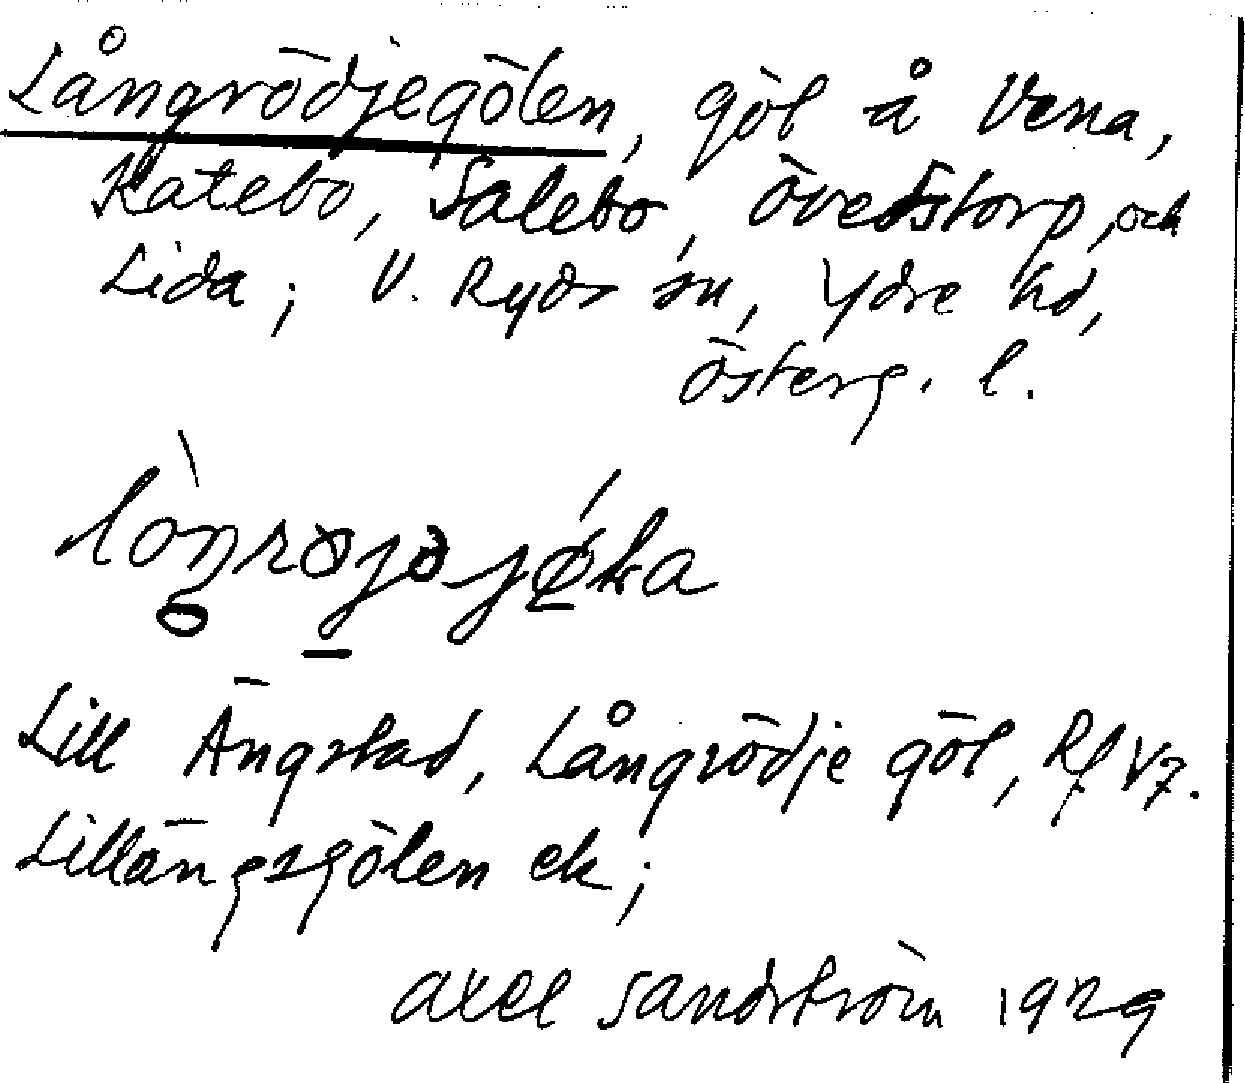 Långrödjegölen, göl å Vena,
Katebo, Salebo, Övedstorp, och
Lida; V. Ryds sn, Ydre hd,
Österg. l.
Lill Ängstad, Långrödje göl, Rf V7.
Lillängsgölen ek;
Axel Sandström 1929